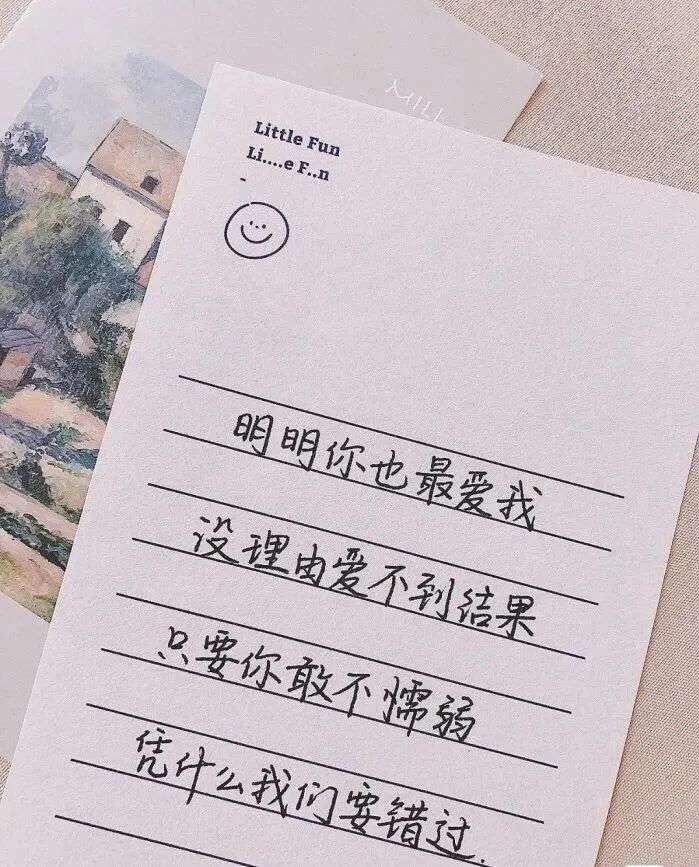 Little Fun
Li....e F..n
明明你也最爱我
没理由爱不到结果
只要你敢不懦弱
凭什么我们要错过.